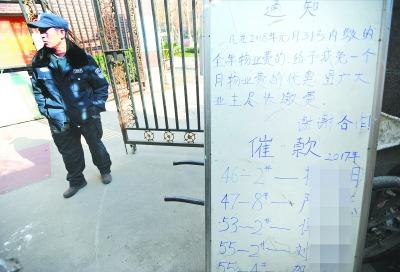 通 知
凡在2018年元月31号内缴纳
全年物业费的,给予减免一个
月物业费的优惠,望广大
业主尽快缴费.
谢谢合作!
催 款 2017年
46-2#— 月
47-8#—
53-2—
55-2#—刘
55-4#—贺